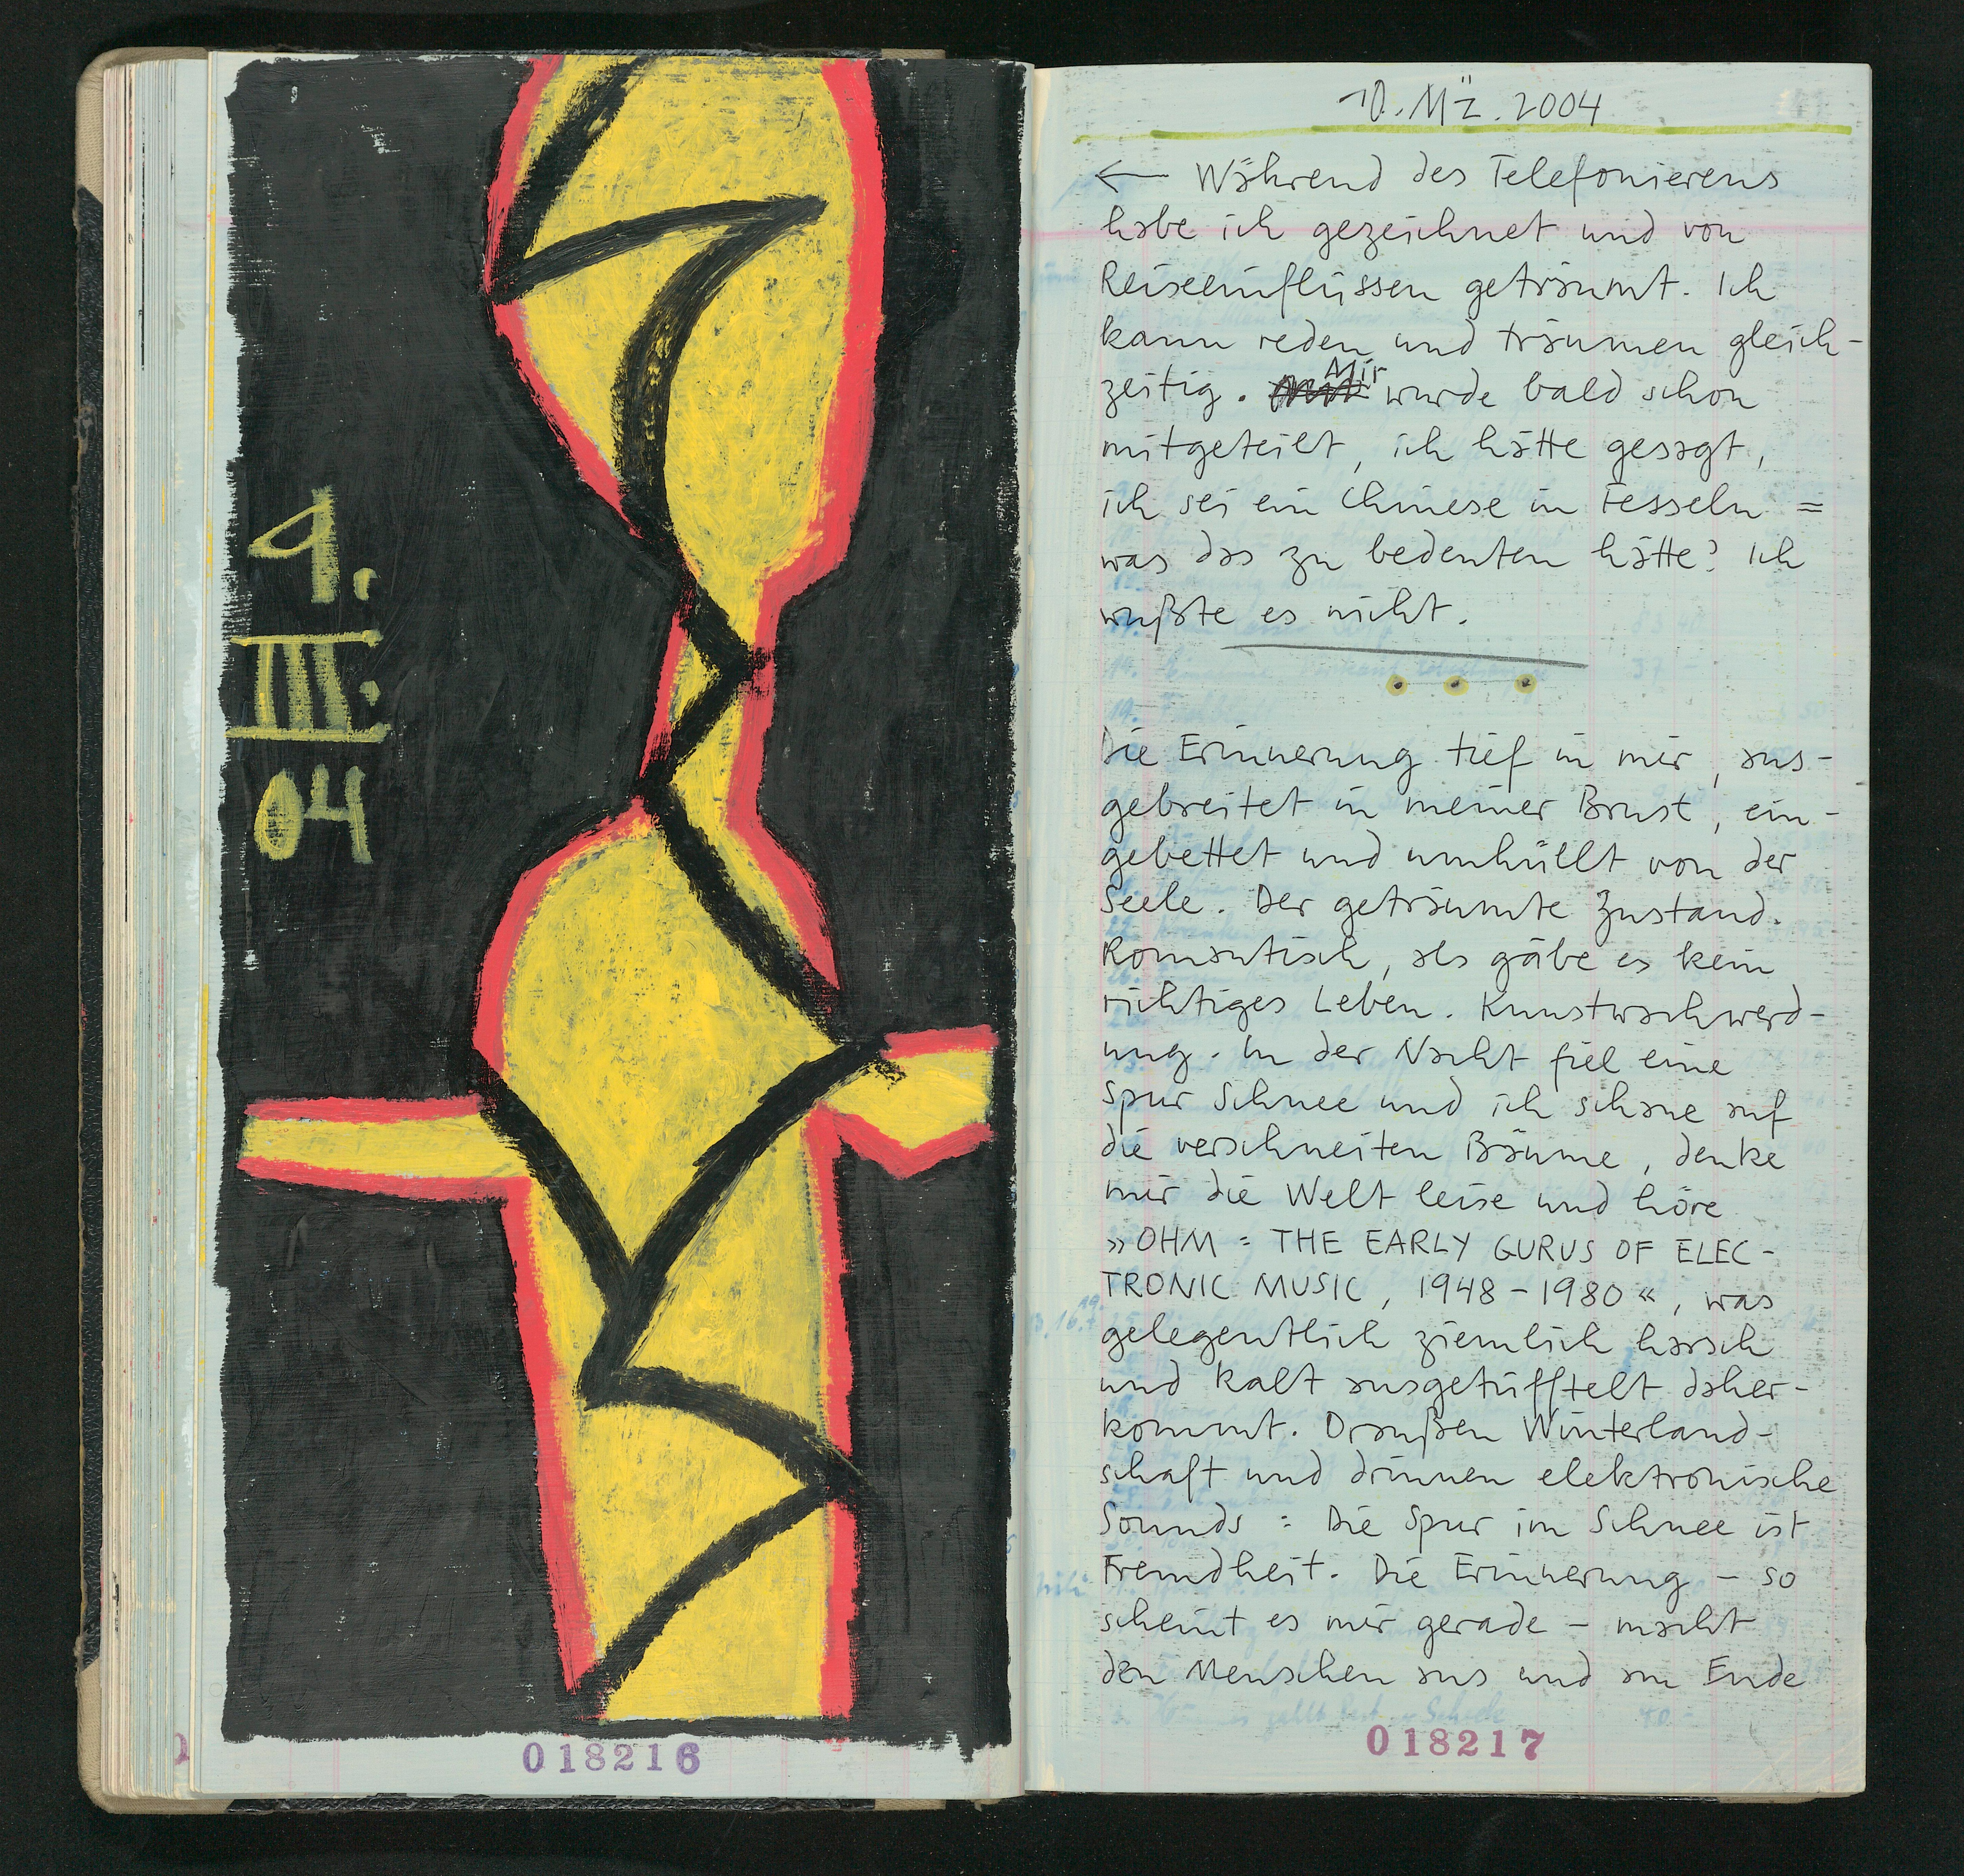 1.
III.
04
018216
10. Mä. 2004
← Während des Telefonierens
habe ich gezeichnet und von
Reiseeinflüssen geträumt. Ich
kann reden und träumen gleich-
zeitig. Mir wurde bald schon
mitgeteilt, ich hätte gesagt,
ich sei ein Chinese in Fesseln =
was das zu bedeuten hätte? Ich
wußte es nicht.
Die Erinnerung tief in mir, aus-
gebreitet in meiner Brust, ein-
gebettet und umhüllt von der
Seele. Der geträumte Zustand.
Romantisch, als gäbe es kein
richtiges Leben. Kunstwachwerd-
ung. In der Nacht fiel eine
Spur Schnee und ich schaue auf
die verschneiten Bäume, denke
mir die Welt leise und höre
»OHM = THE EARLY GURUS OF ELEC-
TRONIC MUSIC, 1948-1980«, was
gelegentlich ziemlich harsch
und kalt ausgetüfftelt daher-
kommt. Draußen Winterland-
schaft und drinnen elektronische
Sounds : Die Spur im Schnee ist
Fremdheit. Die Erinnerung – so
scheint es mir gerade – macht
den Menschen aus und am Ende
018217